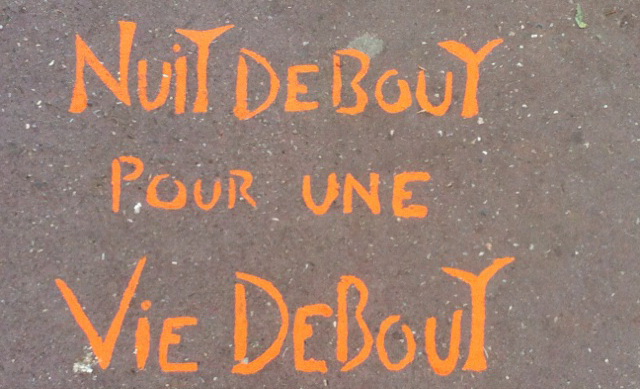 NUiT DEBOUT
POUR UNE
ViE DEBOUT